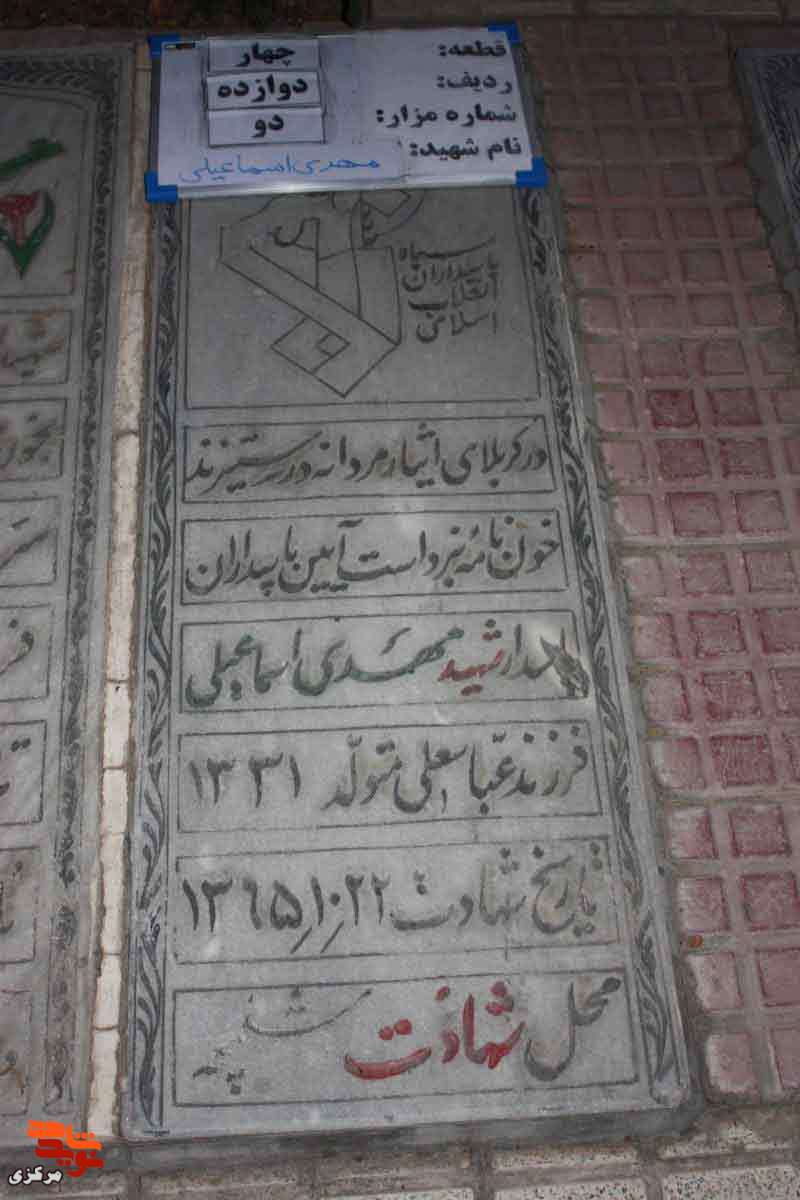 قطعه: چهار
ردیف: دوازده
شماره مزار: دو
نام شهید: مهدی اسماعیلی
سپاه
پاسداران
انقلاب
اسلامی
در کربلای ایثار مردانه در ستیزند
خون نامهٔ نبرد است آیین پاسداران
پاسدار شهید مهدی اسماعیلی
فرزند عباسعلی متولد ۱۳۳۱
تاریخ شهادت ۱۳۶۵٫۱۰٫۲۲
محل شهادت شلمچه
مرکزی